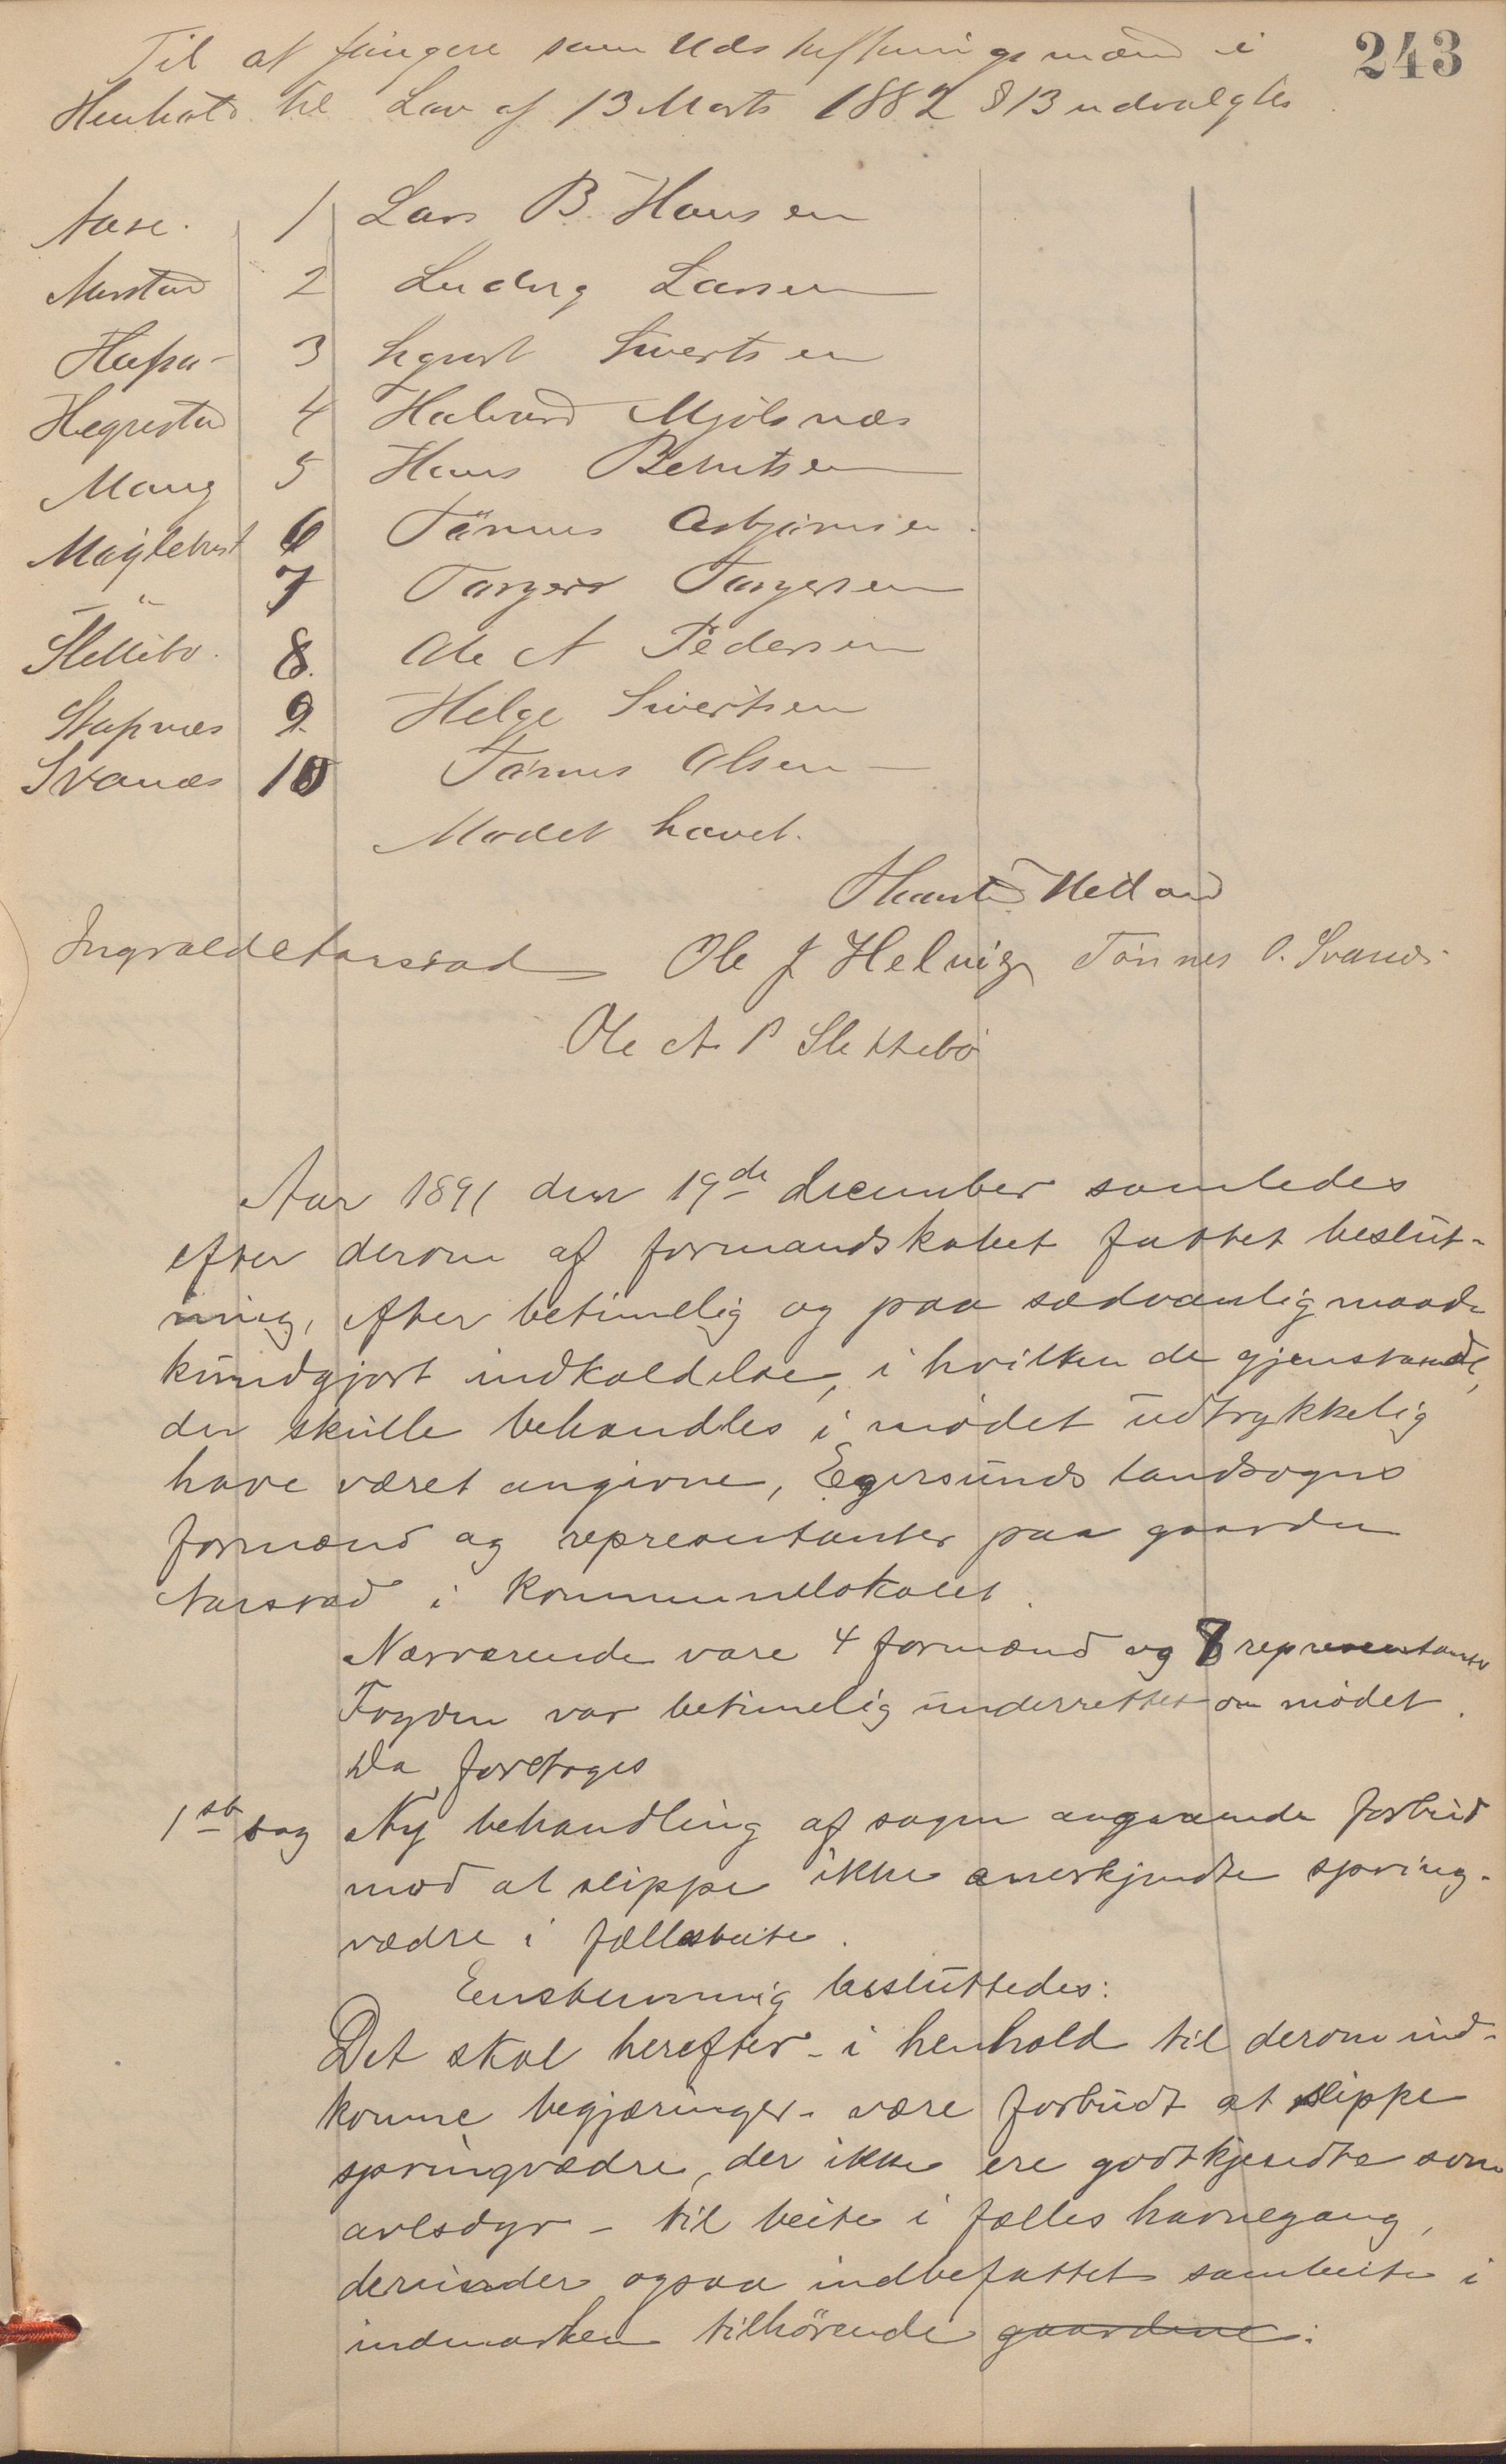 243
Til at fungere som Udskiftningsmænd i
Henhold til Lov af 13 Marts 1882 § 13 udvalgtes
Aase. 1 Lars B. Hansen
Aarstad 2 Ludvig Larsen
3 Sivertsen
Hegrestad 4 Halvard Mjølsnæs
Maug 5 Hans Berntsen
Møgletvedt 6 Tönnes Asbjørnsen.
" 7 Torger Torgersen
Slettebø. 8. Ole A Pedersen
Stapnæs 9. Helge Sivertsen
Svanæs 10 Tönnes Olsen
Mødet hævet.
Ingvald Aarstad Ole J Helvig Tönnes O. Svanæs
Ole A P Slettebö
Aar 1891 den 19de december samledes
efter derom af formandskabet fattet beslut-
ning, efter betimelig og paa sædvanlig maade
kundgjort indkaldelse, i hvilken de gjenstande,
der skulle behandles i mødet udtrykkelig
have været angivne, Egersunds landsogns
formænd og representanter paa gaarden
Aarstad i Kommunelokalet.
Nærværende vare 4 formænd og 8 representanter
Fogden var betimelig underrettet om mødet.
Da foretoges
1ste sag Ny behandling af sagen angaaende forbud
mod at slippe ikke anerkjendte spring-
vædre i fællesbeite.
Eenstemmig besluttedes:
Det skal herefter - i henhold til derom ind-
komne begjæringer - være forbudt at slippe
springvædre, der ikke ere godtkjendte som
avlsdyr - til beite i fælles havnegang,
derunder ogsaa indbefattet sambeite i
indmarken tilhörende gaardene.